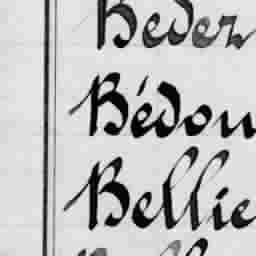 Bedez
Bédou
Bellie